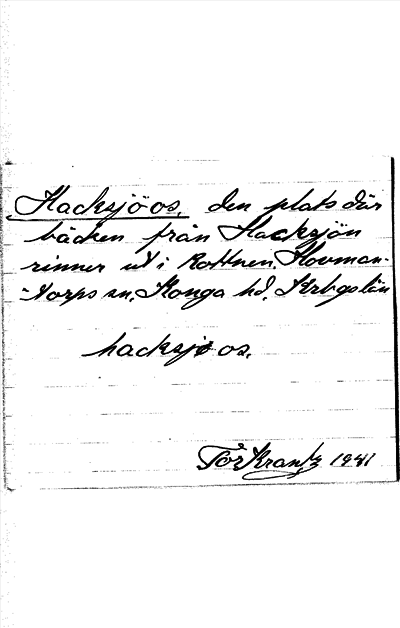 Hacksjöos, den plats där
bäcken från Hacksjön
rinner ut i Rottnen, Hovman-
-torps sn, Konga hd, Krbgs län
hacksjos os.
Tor Krantz 1941